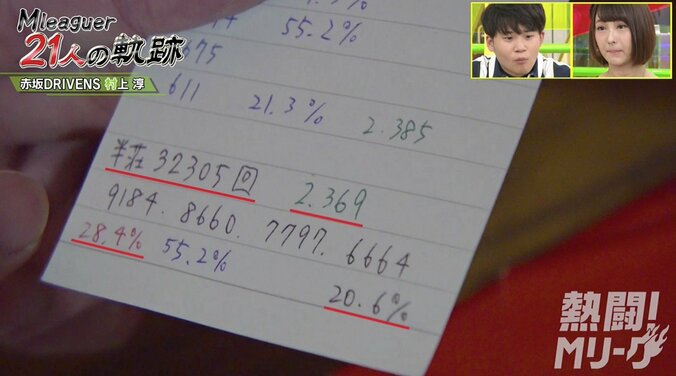 Mleaguer
21人の軌跡
赤坂DRIVENS 村上 淳
55.2%
675
611 21.3% 2.385
半荘 32305回 2.369
9184. 8660. 7797. 6664
28.4% 55.2% 20.6%
熱闘!
Mリーグ